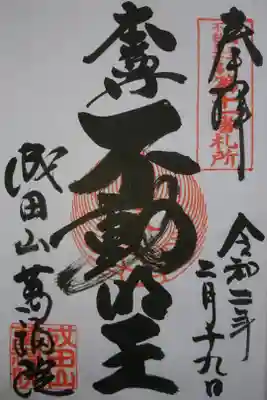 奉拝
札所
令和二年
二月十九日
不動明王
成田山萬福院
成田山